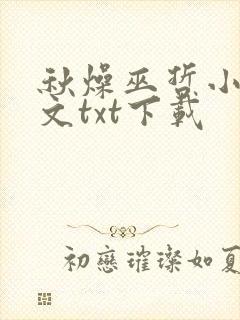 秋燥巫哲小
文txt下载
初戀璀璨如夏